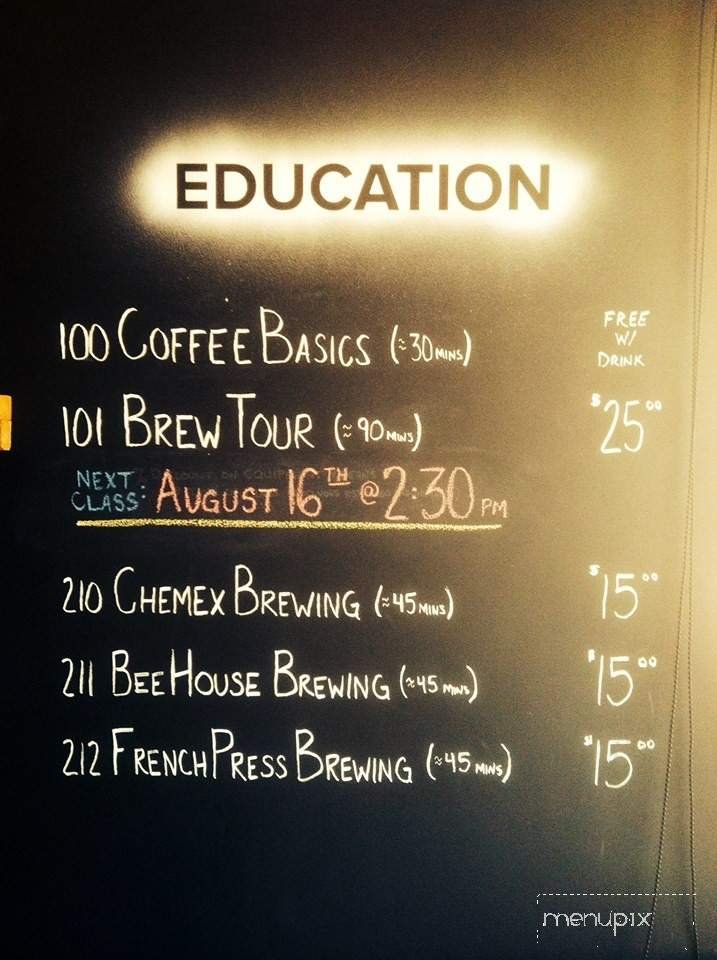 EDUCATION
100 COFFEE BASICS (≈30 MINS) FREE W/ DRINK
101 BREW TOUR (≈90 MINS) $25.00
NEXT CLASS: AUGUST 16TH @ 2:30 PM
210 CHEMEX BREWING (≈45 MINS) $15.00
211 BEE HOUSE BREWING (≈45 MINS) $15.00
212 FRENCH PRESS BREWING (≈45 MINS) $15.00
menupix